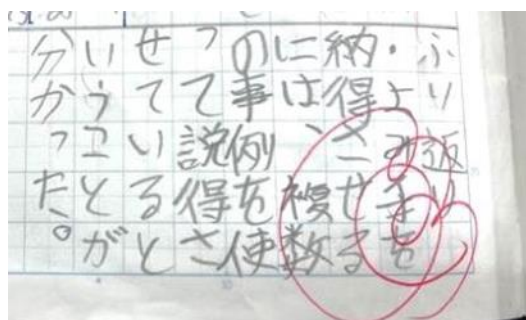 ふり返り
・よみ手を
納得させる
には、複数
の事例を使
って説得さ
せていると
いうことが
分かった。